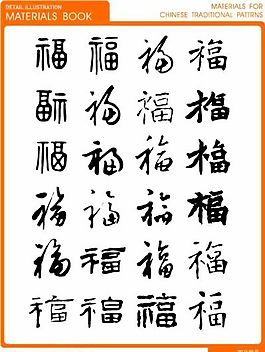 DETAIL ILLUSTRATION
MATERIALS BOOK
MATERIALS FOR
CHINESE TRADITIONAL PATTRNS
福 福 福 福
福 福 福 福
福 福 福 福
福 福 福 福
福 福 福 福
福 福 福 福